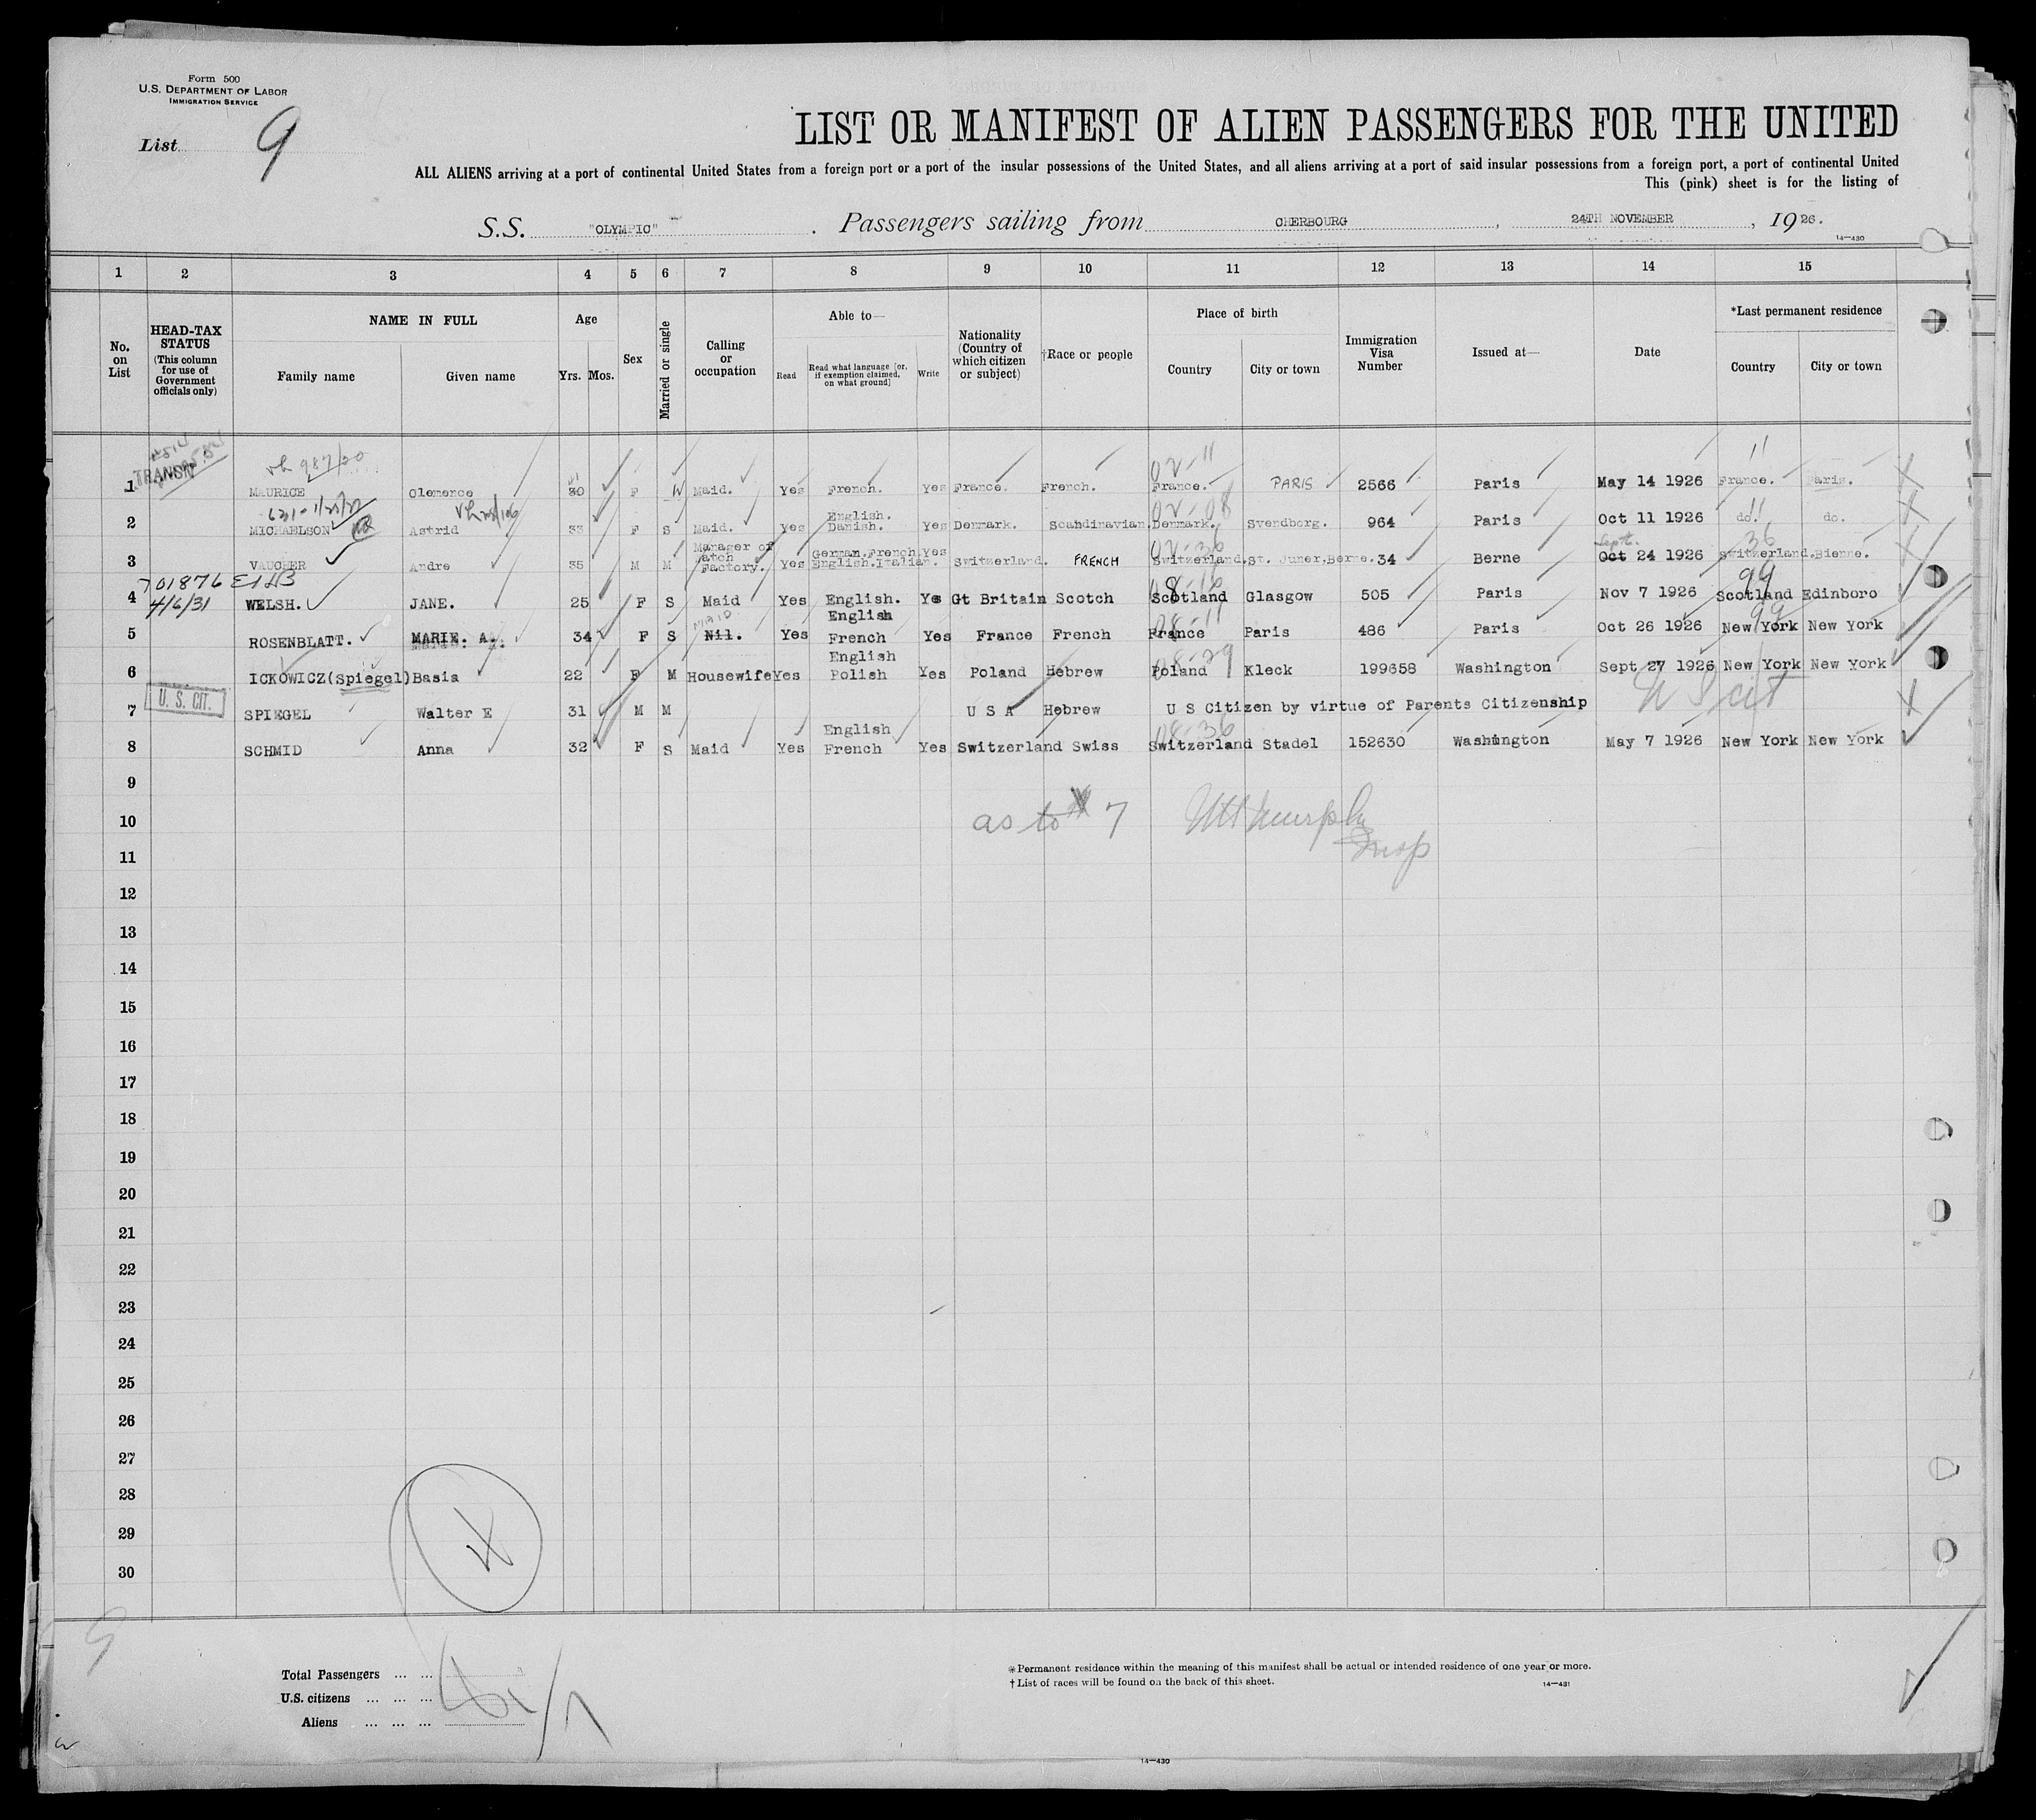 Form 500
U.S. DEPARTMENT OF LABOR
IMMIGRATION SERVICE
List 9
LIST OR MANIFEST OF ALIEN PASSENGERS FOR THE UNITED
ALL ALIENS arriving at a port of continental United States from a foreign port or a port of the insular possessions of the United States, and all aliens arriving at a port of said insular possessions from a foreign port, a port of continental United
This (pink) sheet is for the listing of
S.S. "OLYMPIC" . Passengers sailing from CHERBOURG , 24TH NOVEMBER , 1926.
14—430
1 2 3 4 5 6 7 8 9 10 11 12 13 14 15
No. on List
HEAD-TAX STATUS
(This column for use of Government officials only)
NAME IN FULL
Family name Given name
Age
Yrs. Mos.
Sex
Married or single
Calling or occupation
Able to—
Read
Read what language [or, if exemption claimed, on what ground]
Write
Nationality (Country of which citizen or subject)
†Race or people
Place of birth
Country City or town
Immigration Visa Number
Issued at—
Date
*Last permanent residence
Country City or town
02-11 11
1 TRANSIT MAURICE Clemence 30 F W Maid. Yes French. Yes France. French. France. PARIS 2566 Paris May 14 1926 France. Paris.
02-08 11
2 MICHAELSON Astrid 33 F S Maid. Yes English. Danish. Yes Denmark. Scandinavian. Denmark. Svendborg. 964 Paris Oct 11 1926 do. do.
02-36 Sept. 36
3 VAUCHER Andre 35 M M Manager of Factory. Yes German, French, English. Italian. Yes Switzerland. FRENCH Switzerland. St. Juner, Berne. 34 Berne Oct 24 1926 Switzerland. Bienne.
701876
4/6/31
99
4 WELSH. JANE. 25 F S Maid Yes English. Yes Gt Britain Scotch Scotland Glasgow 505 Paris Nov 7 1926 Scotland Edinboro
MAID 08-11 99
5 ROSENBLATT. MARIE. A. 34 F S Nil. Yes English French Yes France French France Paris 486 Paris Oct 26 1926 New York New York
08-29
6 ICKOWICZ(Spiegel) Basia 22 F M Housewife Yes English Polish Yes Poland Hebrew Poland Kleck 199658 Washington Sept 27 1926 New York New York
U. S. CIT.
7 SPIEGEL Walter E 31 M M U S A Hebrew U S Citizen by virtue of Parents Citizenship U S cit
08-36
8 SCHMID Anna 32 F S Maid Yes English French Yes Switzerland Swiss Switzerland Stadel 152630 Washington May 7 1926 New York New York
9
10 as to # 7 Murphy
Insp
11
12
13
14
15
16
17
18
19
20
21
22
23
24
25
26
27
28
29
30
Total Passengers ... ...
U.S. citizens ... ... ...
Aliens ... ... ...
*Permanent residence within the meaning of this manifest shall be actual or intended residence of one year or more.
†List of races will be found on the back of this sheet.
14—431
14—430